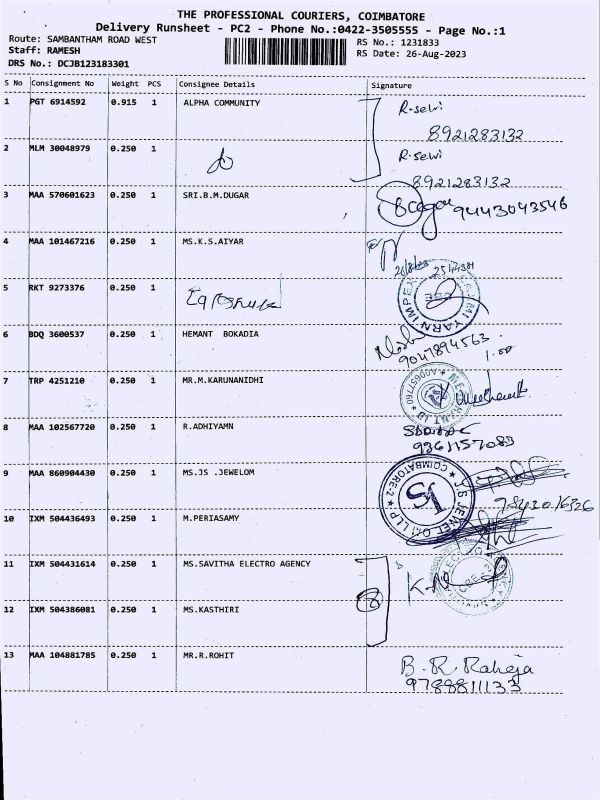 THE PROFESSIONAL COURIERS, COIMBATORE
Delivery Runsheet - PC2 - Phone No.:0422-3505555 - Page No.:1
Route: SAMBANTHAM ROAD WEST
RS No.: 1231833
Staff: RAMESH
RS Date: 26-Aug-2023
DRS No.: DCJB123183301
S No Consignment No Weight PCS Consignee Details Signature
1 PGT 6914592 0.915 1 ALPHA COMMUNITY R.selvi
8921283132
2 MLM 30048979 0.250 1 R.selvi
8921283132
3 MAA 570601623 0.250 1 SRI.B.M.DUGAR 9443043546
4 MAA 101467216 0.250 1 MS.K.S.AIYAR
5 RKT 9273376 0.250 1 YARN IMPEX
6 BDQ 3600537 0.250 1 HEMANT BOKADIA
9047894563
7 TRP 4251210 0.250 1 MR.M.KARUNANIDHI
8 MAA 102567720 0.250 1 R.ADHIYAMN
9361157083
9 MAA 860904430 0.250 1 MS.JS .JEWELOM COIMBATORE-2
10 IXM 504436493 0.250 1 M.PERIASAMY
11 IXM 504431614 0.250 1 MS.SAVITHA ELECTRO AGENCY
12 IXM 504386081 0.250 1 MS.KASTHIRI
13 MAA 104881785 0.250 1 MR.R.ROHIT B.R.Raheja
9788811133